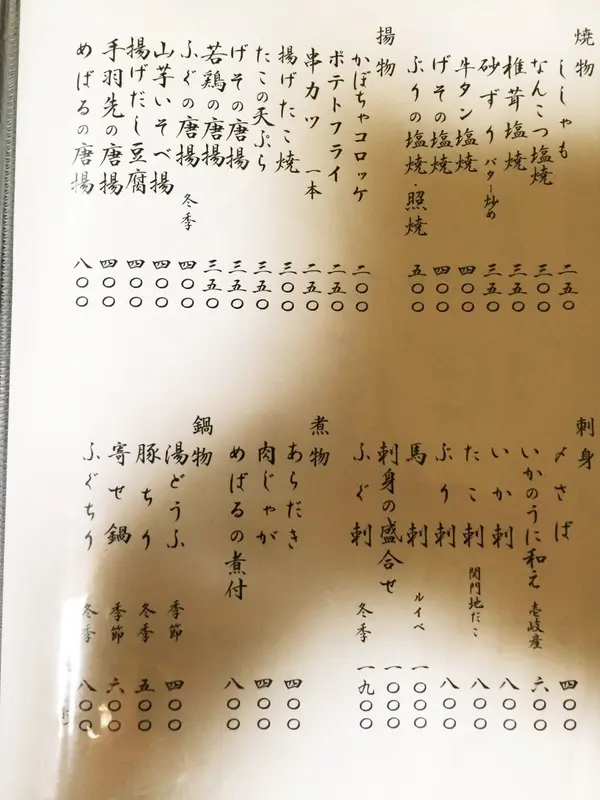 焼物
ししゃも 二五〇
なんこつ塩焼 三〇〇
椎茸塩焼 三五〇
砂ずり バター炒め 三五〇
牛タン塩焼 四〇〇
げその塩焼 四〇〇
ぶりの塩焼・照焼 五〇〇
揚物
かぼちゃコロッケ 二〇〇
ポテトフライ 二五〇
串カツ 一本 二五〇
揚げたこ焼 三〇〇
たこの天ぷら 三五〇
げその唐揚 三五〇
若鶏の唐揚 三五〇
ふぐの唐揚 冬季 四〇〇
山芋いそべ揚 四〇〇
揚げだし豆腐 四〇〇
手羽先の唐揚 四〇〇
めばるの唐揚 八〇〇
刺身
〆さば 四〇〇
いかのうに和え 壱岐産 六〇〇
いか刺 八〇〇
たこ刺 関門地だこ 八〇〇
ぶり刺 八〇〇
馬刺 ルイベ 一〇〇〇
刺身の盛合せ 一〇〇〇
ふぐ刺 冬季 一九〇〇
煮物
あらだき 四〇〇
肉じゃが 四〇〇
めばるの煮付 八〇〇
鍋物
湯どうふ 季節 四〇〇
豚ちり 冬季 五〇〇
寄せ鍋 季節 六〇〇
ふぐちり 冬季 八〇〇